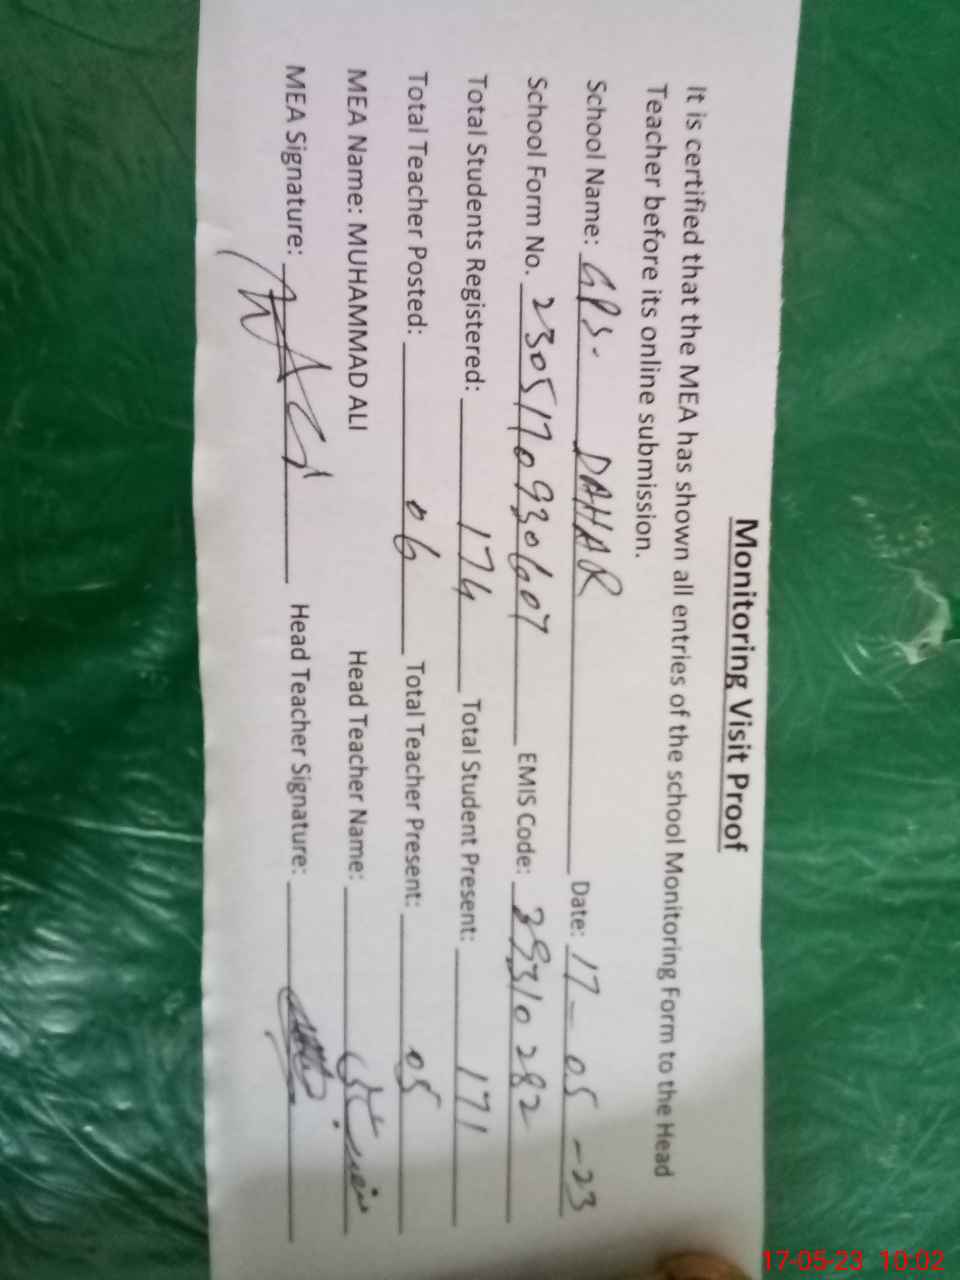 Monitoring Visit Proof
It is certified that the MEA has shown all entries of the school Monitoring Form to the Head
Teacher before its online submission.
School Name: GPS. DAHAR Date: 17-05-23
School Form No. 2305170930607 EMIS Code: 39310282
Total Students Registered: 174 Total Student Present: 171
Total Teacher Posted: 06 Total Teacher Present: 05
MEA Name: MUHAMMAD ALI Head Teacher Name:
MEA Signature: Head Teacher Signature:
17-05-23 10:02